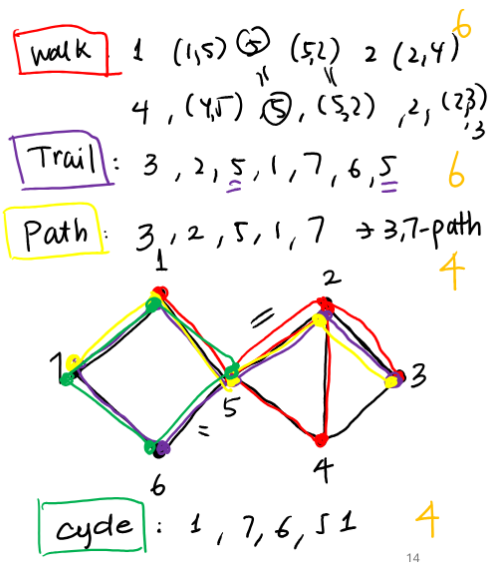 walk 1 (1,5) 5 (5,2) 2 (2,4) 6
4, (4,5), 5, (5,2), 2, (2,3)
,3
Trail : 3, 2, 5, 1, 7, 6, 5 6
Path : 3, 2, 5, 1, 7 → 3,7-path
4
1
2
7
=
3
5
=
6
4
cycle : 1, 7, 6, 5 1 4
14